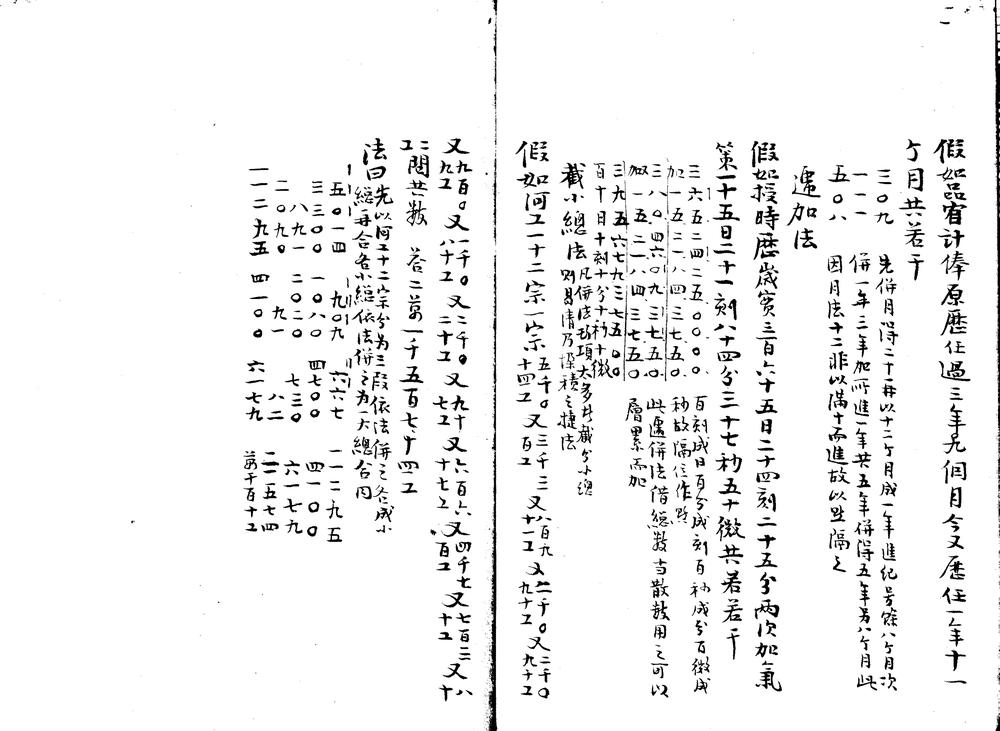 假如品官計俸原歷任過三年九個月今又歷任一年十一
个月共若干
三〇九
一一一
五〇八
先併月得二十再以十二个月成一年進紀号餘八个月次
併一年三年加所進一年共五年併得五年另八个月此
因月法十二非以滿十而進故以點隔之
遞加法
假如授時歷歲實三百六十五日二十四刻二十五分兩次加氣
第一十五日二十一刻八十四分三十七秒五十微共若若干
三六五二四二五〇〇〇〇
加一五二一八四三七五〇
三八〇四六〇九三七五〇
加一五二一八四三七五〇
三九五六七九三七五〇〇
百刻成日百分成刻百秒成分百微成
秒故隔位作點
此遞併法借總數当散數用之可以
層累而加
百十日十刻十分十秒十微
截小總法
凡併法款項太多片截分小總
則易清乃深積之捷法
假如何工一十二宗一宗五千〇十四工又三千三百工又八百九十一工又二千〇九十工又二千〇九十工
又九百〇九工又一千〇八十工又二千〇二十工又九十七工又六百六十七工又四千七百工又七百三十工又八十
二工問共數 答二萬一千五百七十四工
法曰先以何工十二宗分为三段依法併之各成小
總再合各小總依法併之为一大總合問
五〇一四 九〇九 六六七 一一二九五
三三〇〇 一〇八〇 四七〇〇 四一〇〇
八九一 二〇二〇 七三〇 六一七九
二〇九〇 九一 八二 二一五七四
一一二九五 四一〇〇 六一七九 萬千百十工